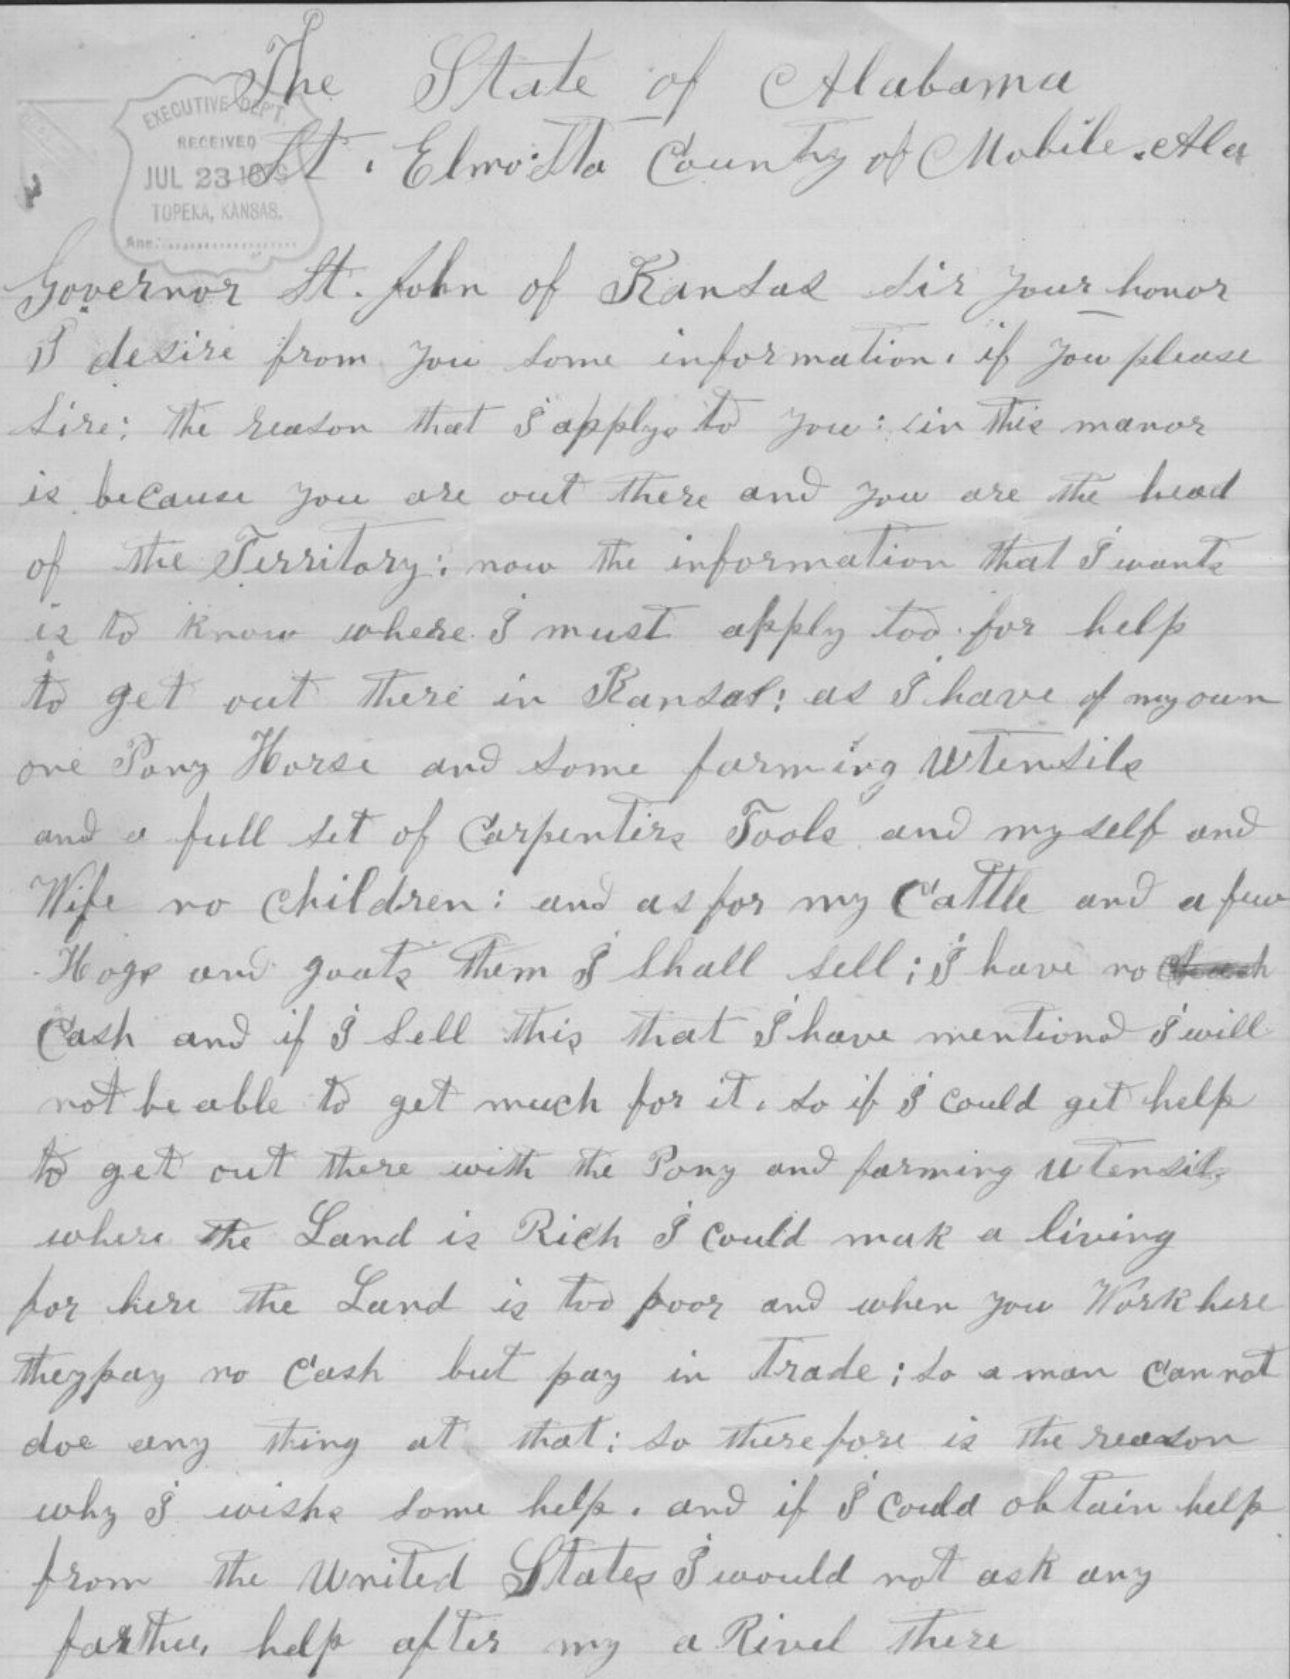 The State of Alabama
EXECUTIVE DEP'T.
RECEIVED
JUL 23
TOPEKA, KANSAS.
Ans:
St. Elmo Sta County of Mobile. Ala
Governor St. John of Kansas Sir your honor
I desire from you some information. if you please
Sire: the reason that I applys to you: in this manor
is because you are out there and you are the head
of the Territory: now the information that I wants
is to know where I must apply too for help
to get out there in Kansas: as I have of my own
one Pony Horse and some farming Utensils
and a full set of Carpenters Tools and myself and
Wife no Children: and as for my Cattle and a few
Hogs and goats them I Shall sell; I have no
Cash and if I Sell this that I have mentiond I will
not be able to get much for it. so if I Could get help
to get out there with the Pony and farming Utensils
where the Land is Rich I Could mak a living
for here the Land is too poor and when you Work here
they pay no Cash but pay in Trade; so a man Can not
doe any thing at that: so therefore is the reason
why I wishs some help. and if I Could obtain help
from the United States I would not ask any
farther help after my a Rivel there